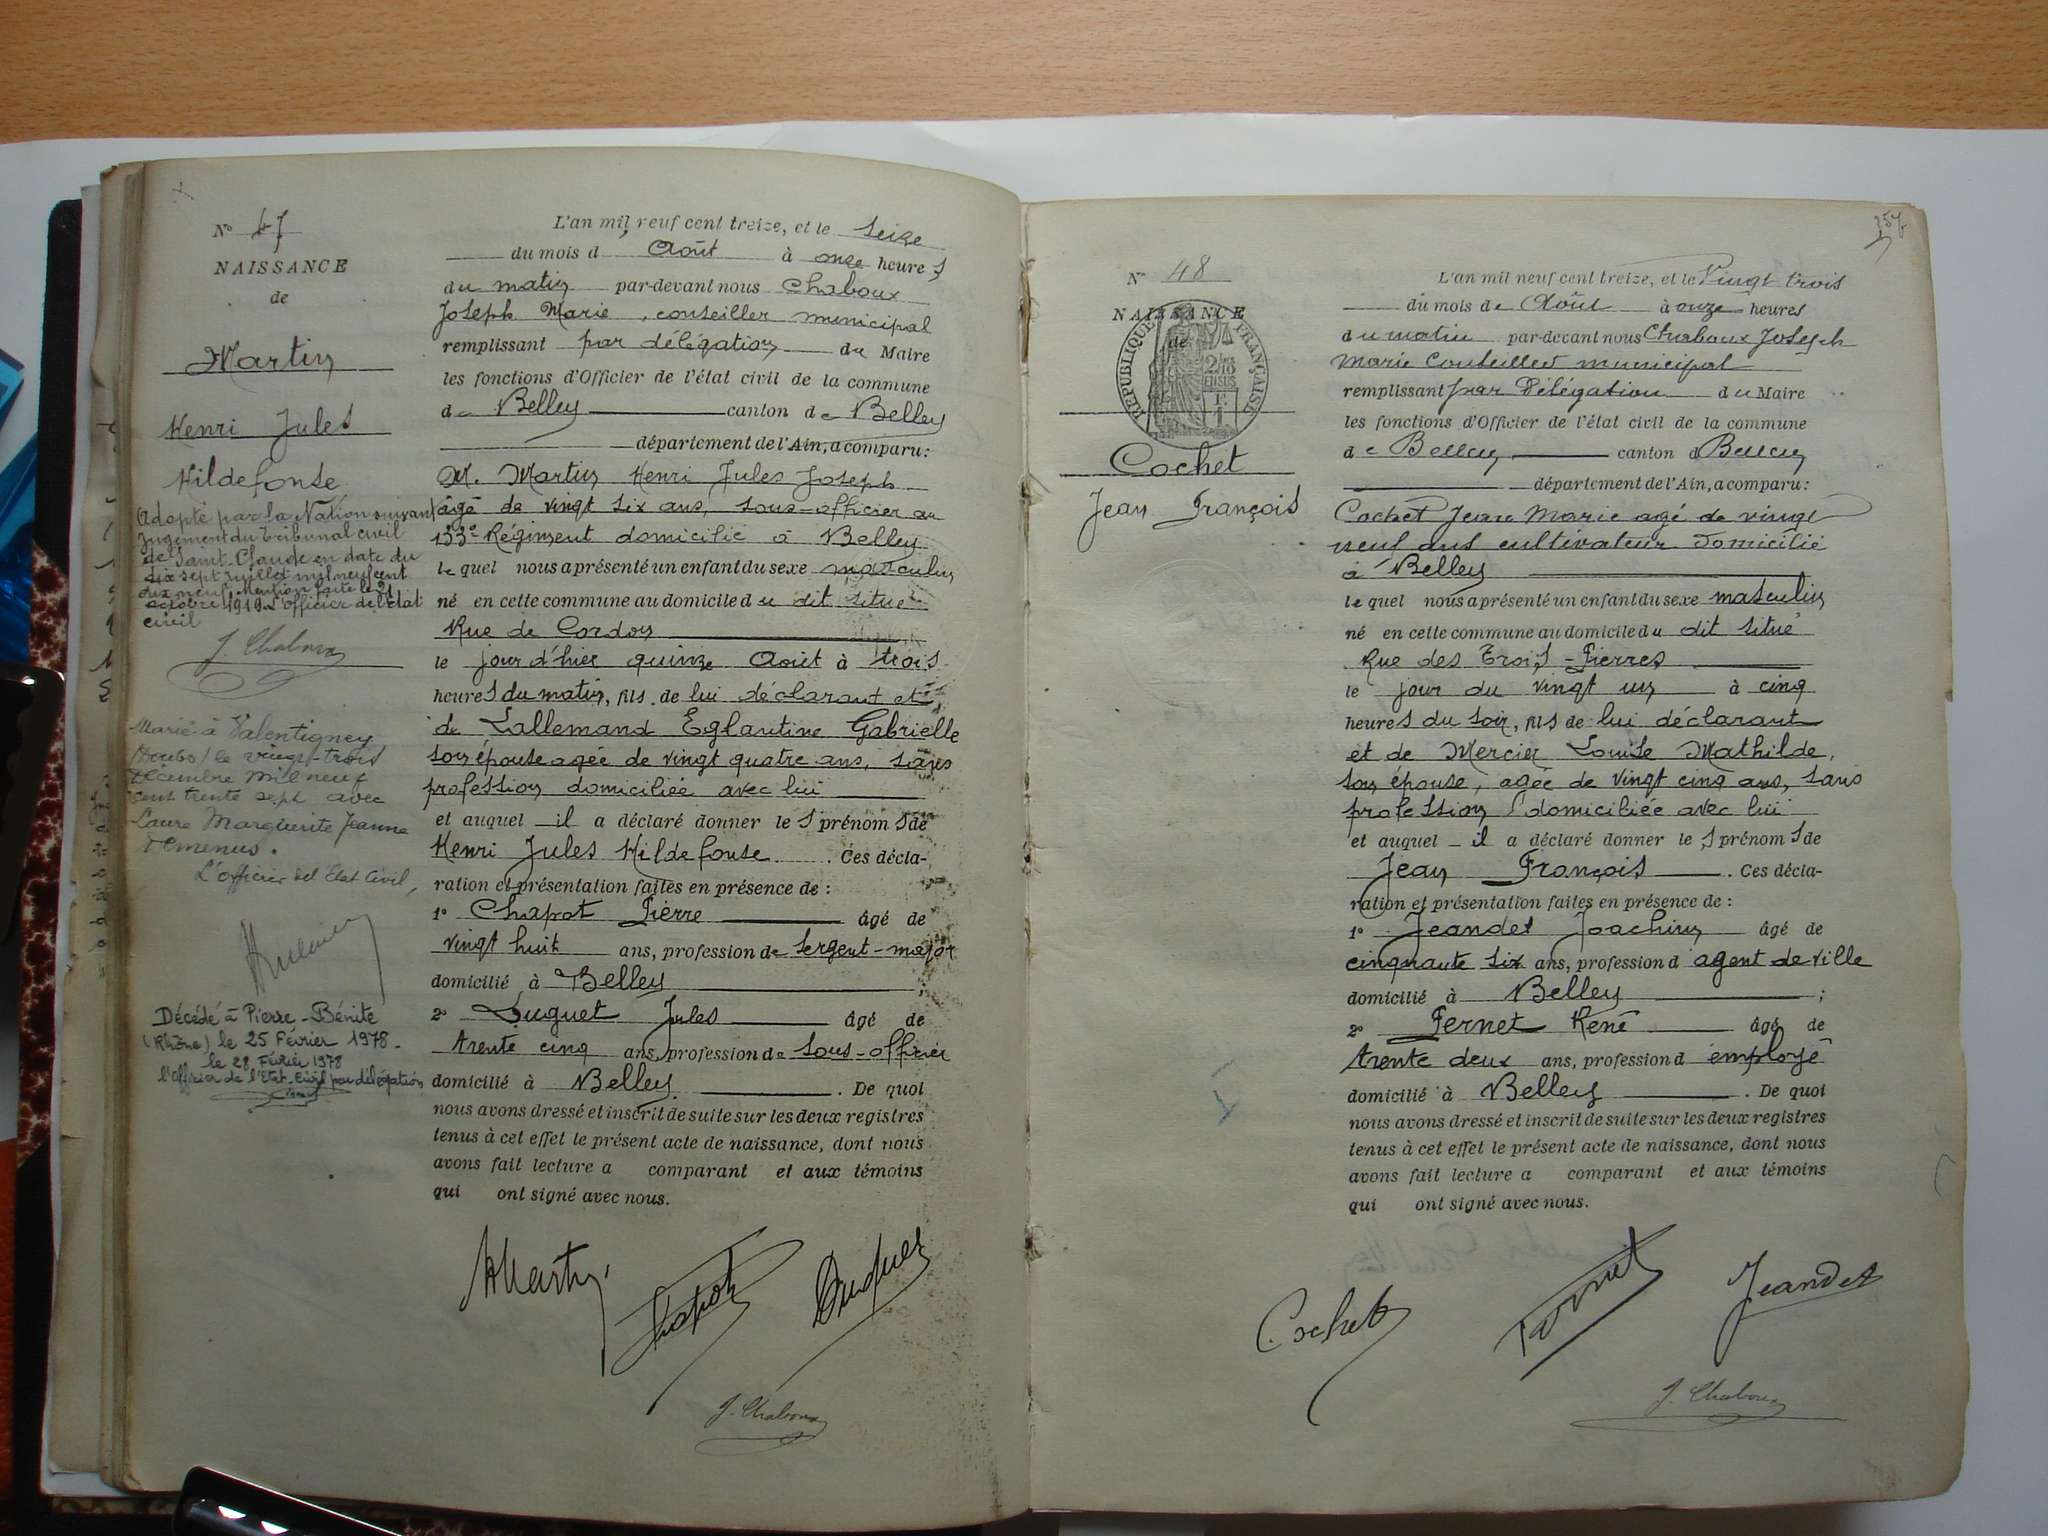 N° 47
NAISSANCE
de
Martin
Henri Jules
Hildefonse
Adopté par la Nation suivant
Jugement du Tribunal civil
de Saint-Claude en date du
dix sept Juillet mil neuf cent
dix neuf. Mention faite le 21
octobre 1919. L'officier de l'Etat
civil
J. Chaboux
Marié à Valentigney
(Doubs) le vingt-trois
décembre mil neuf
cent trente sept avec
Laure Marguerite Jeanne
L'officier de l'Etat Civil,
Décédé à Pierre-Bénite
(Rhône) le 25 Février 1978.
le 28 Février 1978
l'Officier de l'Etat-Civil par délégation
L'an mil neuf cent treize, et le seize
du mois d' Août à onze heures
du matin par-devant nous Chaboux
Joseph Marie, conseiller municipal
remplissant par délégation du Maire
les fonctions d'Officier de l'état civil de la commune
de Belley canton de Belley
département de l'Ain, a comparu:
M. Martin Henri Jules Joseph
âgé de vingt six ans, sous-officier au
133e Régiment domicilié à Belley
lequel nous a présenté un enfant du sexe masculin
né en cette commune au domicile du dit situé
Rue de Cordon
le jour d'hier quinze Août à trois
heures du matin, fils de lui déclarant et
de Lallemand Eglantine Gabrielle
son épouse agée de vingt quatre ans, sans
profession domiciliée avec lui
et auquel il a déclaré donner les prénoms de
Henri Jules Hildefonse. Ces décla-
ration et présentation faites en présence de:
1° Chapot Pierre âgé de
vingt huit ans, profession de sergent-major
domicilié à Belley;
2° Duguet Jules âgé de
trente cinq ans, profession de sous-officier
domicilié à Belley. De quoi
nous avons dressé et inscrit de suite sur les deux registres
tenus à cet effet le présent acte de naissance, dont nous
avons fait lecture a comparant et aux témoins
qui ont signé avec nous.
HMartin
Chapot
Duguet
J. Chaboux
257
N° 48
NAISSANCE
de
RÉPUBLIQUE FRANÇAISE
2/10
EN SUS
Cochet
Jean François
L'an mil neuf cent treize, et le Vingt trois
du mois de Août à onze heures
du matin par-devant nous Chaboux Joseph
Marie Conseiller municipal
remplissant par Délégation du Maire
les fonctions d'Officier de l'état civil de la commune
de Belley canton d Belley
département de l'Ain, a comparu:
Cochet Jean Marie agé de vingt
neuf ans cultivateur domicilié
à Belley
lequel nous a présenté un enfant du sexe masculin
né en cette commune au domicile du dit situé
Rue des Trois-Pierres
le jour du vingt un à cinq
heures du soir, fils de lui déclarant
et de Mercier Louise Mathilde,
son épouse, agée de vingt cinq ans, sans
profession domiciliée avec lui
et auquel il a déclaré donner les prénoms de
Jean François. Ces décla-
ration et présentation faites en présence de:
1° Jeandet Joachim âgé de
cinquante six ans, profession d agent de ville
domicilié à Belley;
2° Pernet René âgé de
trente deux ans, profession d employé
domicilié à Belley. De quoi
nous avons dressé et inscrit de suite sur les deux registres
tenus à cet effet le présent acte de naissance, dont nous
avons fait lecture a comparant et aux témoins
qui ont signé avec nous.
Cochet
Pernet
Jeandet
J. Chaboux